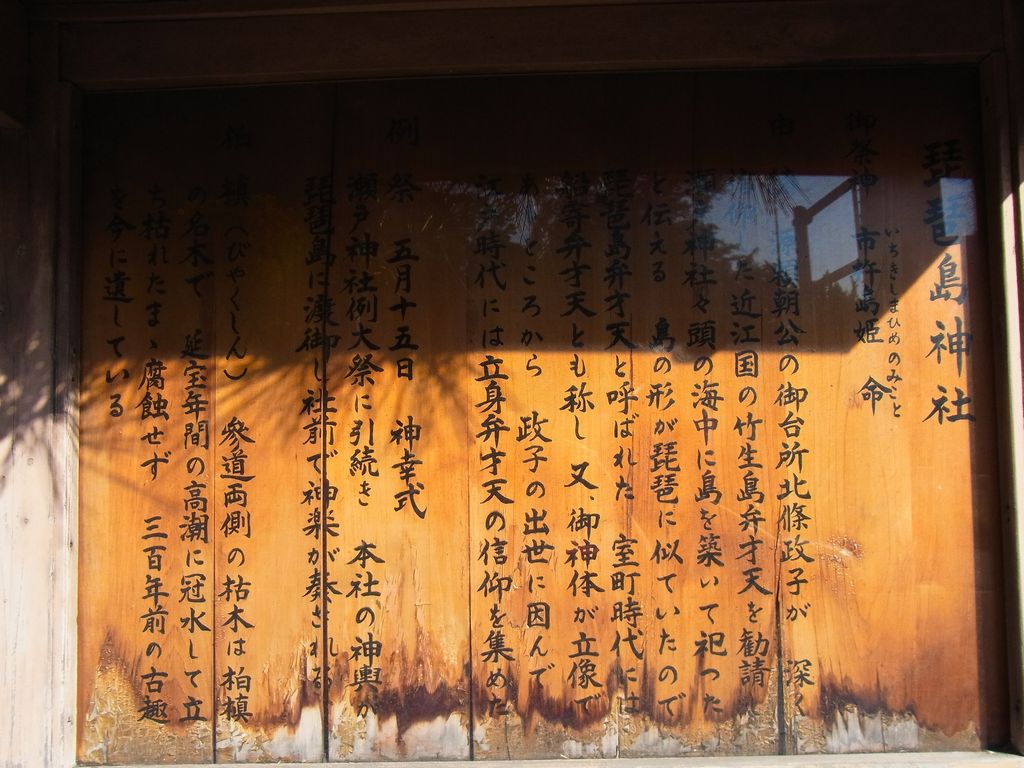 琵琶島神社
御祭神 市杵島姫命
いちきしまひめのみこと
由
頼朝公の御台所北條政子が 深く
した近江国の竹生島弁才天を勧請し
瀬戸神社々頭の海中に島を築いて祀った
と伝える 島の形が琵琶に似ていたので
琵琶島弁才天と呼ばれた 室町時代には
舩寄弁才天とも称し 又、御神体が立像で
あるところから 政子の出世に因んで
江戸時代には立身弁才天の信仰を集めた
例 祭 五月十五日 神幸式
瀬戸神社例大祭に引続き 本社の神輿が
琵琶島に渡御し社前で神楽が奏される
柏 槙（びやくしん） 参道両側の枯木は柏槙
の名木で 延宝年間の高潮に冠水して立
ち枯れたまゝ腐蝕せず 三百年前の古趣
を今に遺している